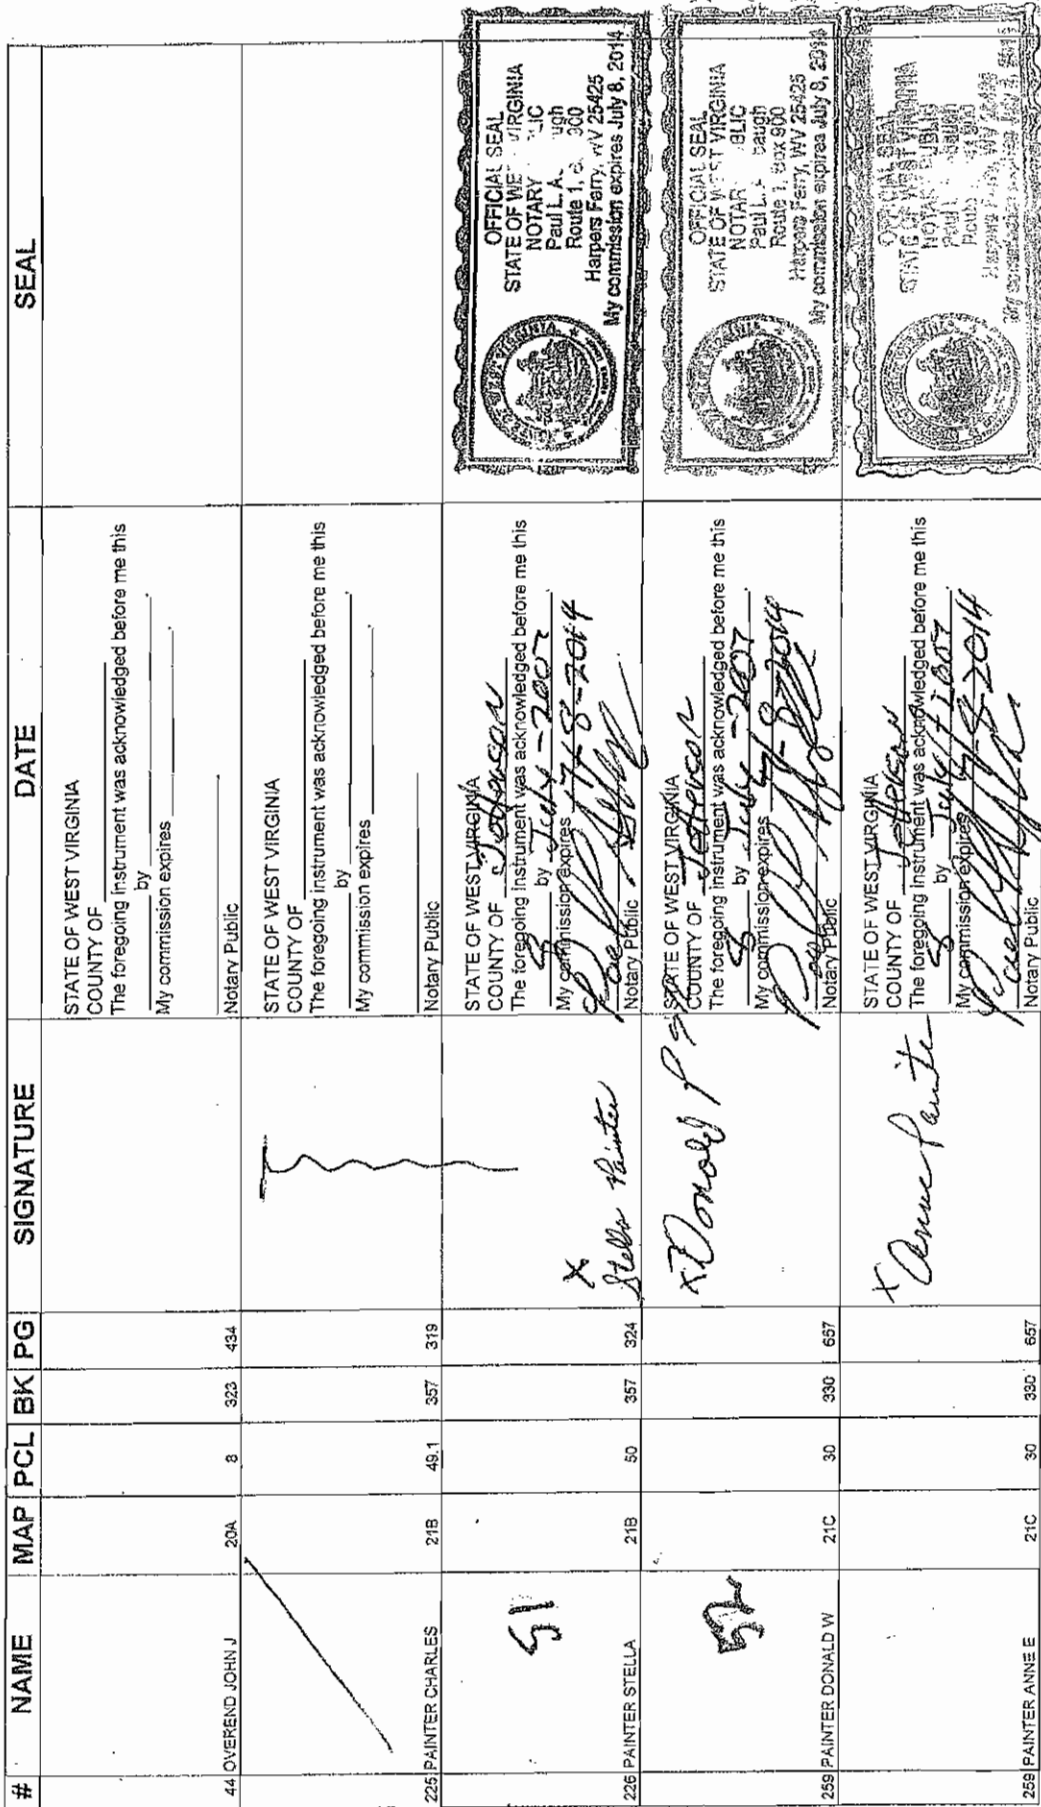 # NAME MAP PCL BK PG SIGNATURE DATE SEAL
44 OVEREND JOHN J 20A 8 323 434
STATE OF WEST VIRGINIA
COUNTY OF
The foregoing instrument was acknowledged before me this
by
My commission expires
Notary Public
225 PAINTER CHARLES 21B 49.1 357 319
STATE OF WEST VIRGINIA
COUNTY OF
The foregoing instrument was acknowledged before me this
by
My commission expires
Notary Public
51
226 PAINTER STELLA 21B 50 357 324
X
Stella Painter
STATE OF WEST VIRGINIA
COUNTY OF Jefferson
The foregoing instrument was acknowledged before me this
8 by July - 2007
My commission expires 7-8-2014
Notary Public
OFFICIAL SEAL
STATE OF WEST VIRGINIA
NOTARY PUBLIC
Paul L.A.
Route 1,
Harpers Ferry, WV 25425
My commission expires July 8, 2014
52
259 PAINTER DONALD W 21C 30 330 657
X Donald
STATE OF WEST VIRGINIA
COUNTY OF Jefferson
The foregoing instrument was acknowledged before me this
8 by July - 2007
My commission expires 7-8-2014
Notary Public
OFFICIAL SEAL
STATE OF WEST VIRGINIA
NOTARY PUBLIC
Paul L.
Route 1, Box 900
Harpers Ferry, WV 25425
My commission expires July 8, 2014
259 PAINTER ANNE E 21C 30 330 657
X
Anne Painter
STATE OF WEST VIRGINIA
COUNTY OF Jefferson
The foregoing instrument was acknowledged before me this
8 by July - 2007
My commission expires 7-8-2014
Notary Public
OFFICIAL SEAL
STATE OF WEST VIRGINIA
NOTARY PUBLIC
Paul
Harpers Ferry, WV 25425
My commission expires July 8, 2014